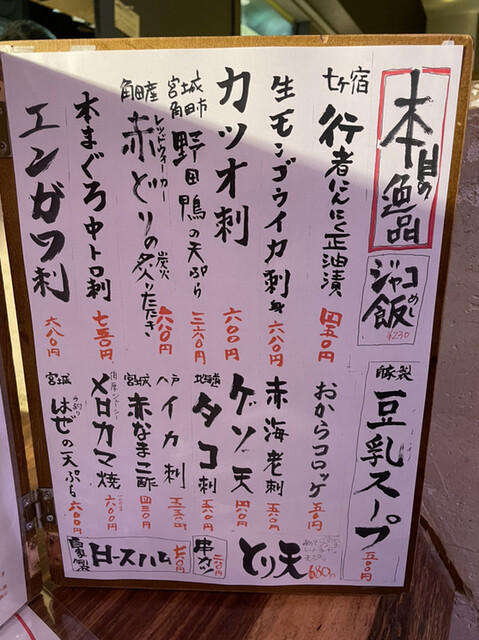 本日の逸品
ジャコ飯
めし
¥230
自家製
豆乳スープ
五〇〇円
七ケ宿
行者にんにく正油漬
四五〇円
生モンゴウイカ刺身
六八〇円
カツオ刺
六〇〇円
宮城
角田市
野田鴨の天ぷら
角田産
レッドウィーカー
赤どりの炭火炙りたたき
六八〇円
本まぐろ中トロ刺
エンガワ刺
六八〇円
おからコロッケ
赤海老刺
五八〇円
ゲソ天
四六〇円
タコ刺
八戸
イカ刺
宮城
赤なまこ酢
四三〇円
メロカマ焼
六〇〇円
宮城
はぜの天ぷら
六〇〇円
とり天
680円
串カツ
自家製
ロースハム